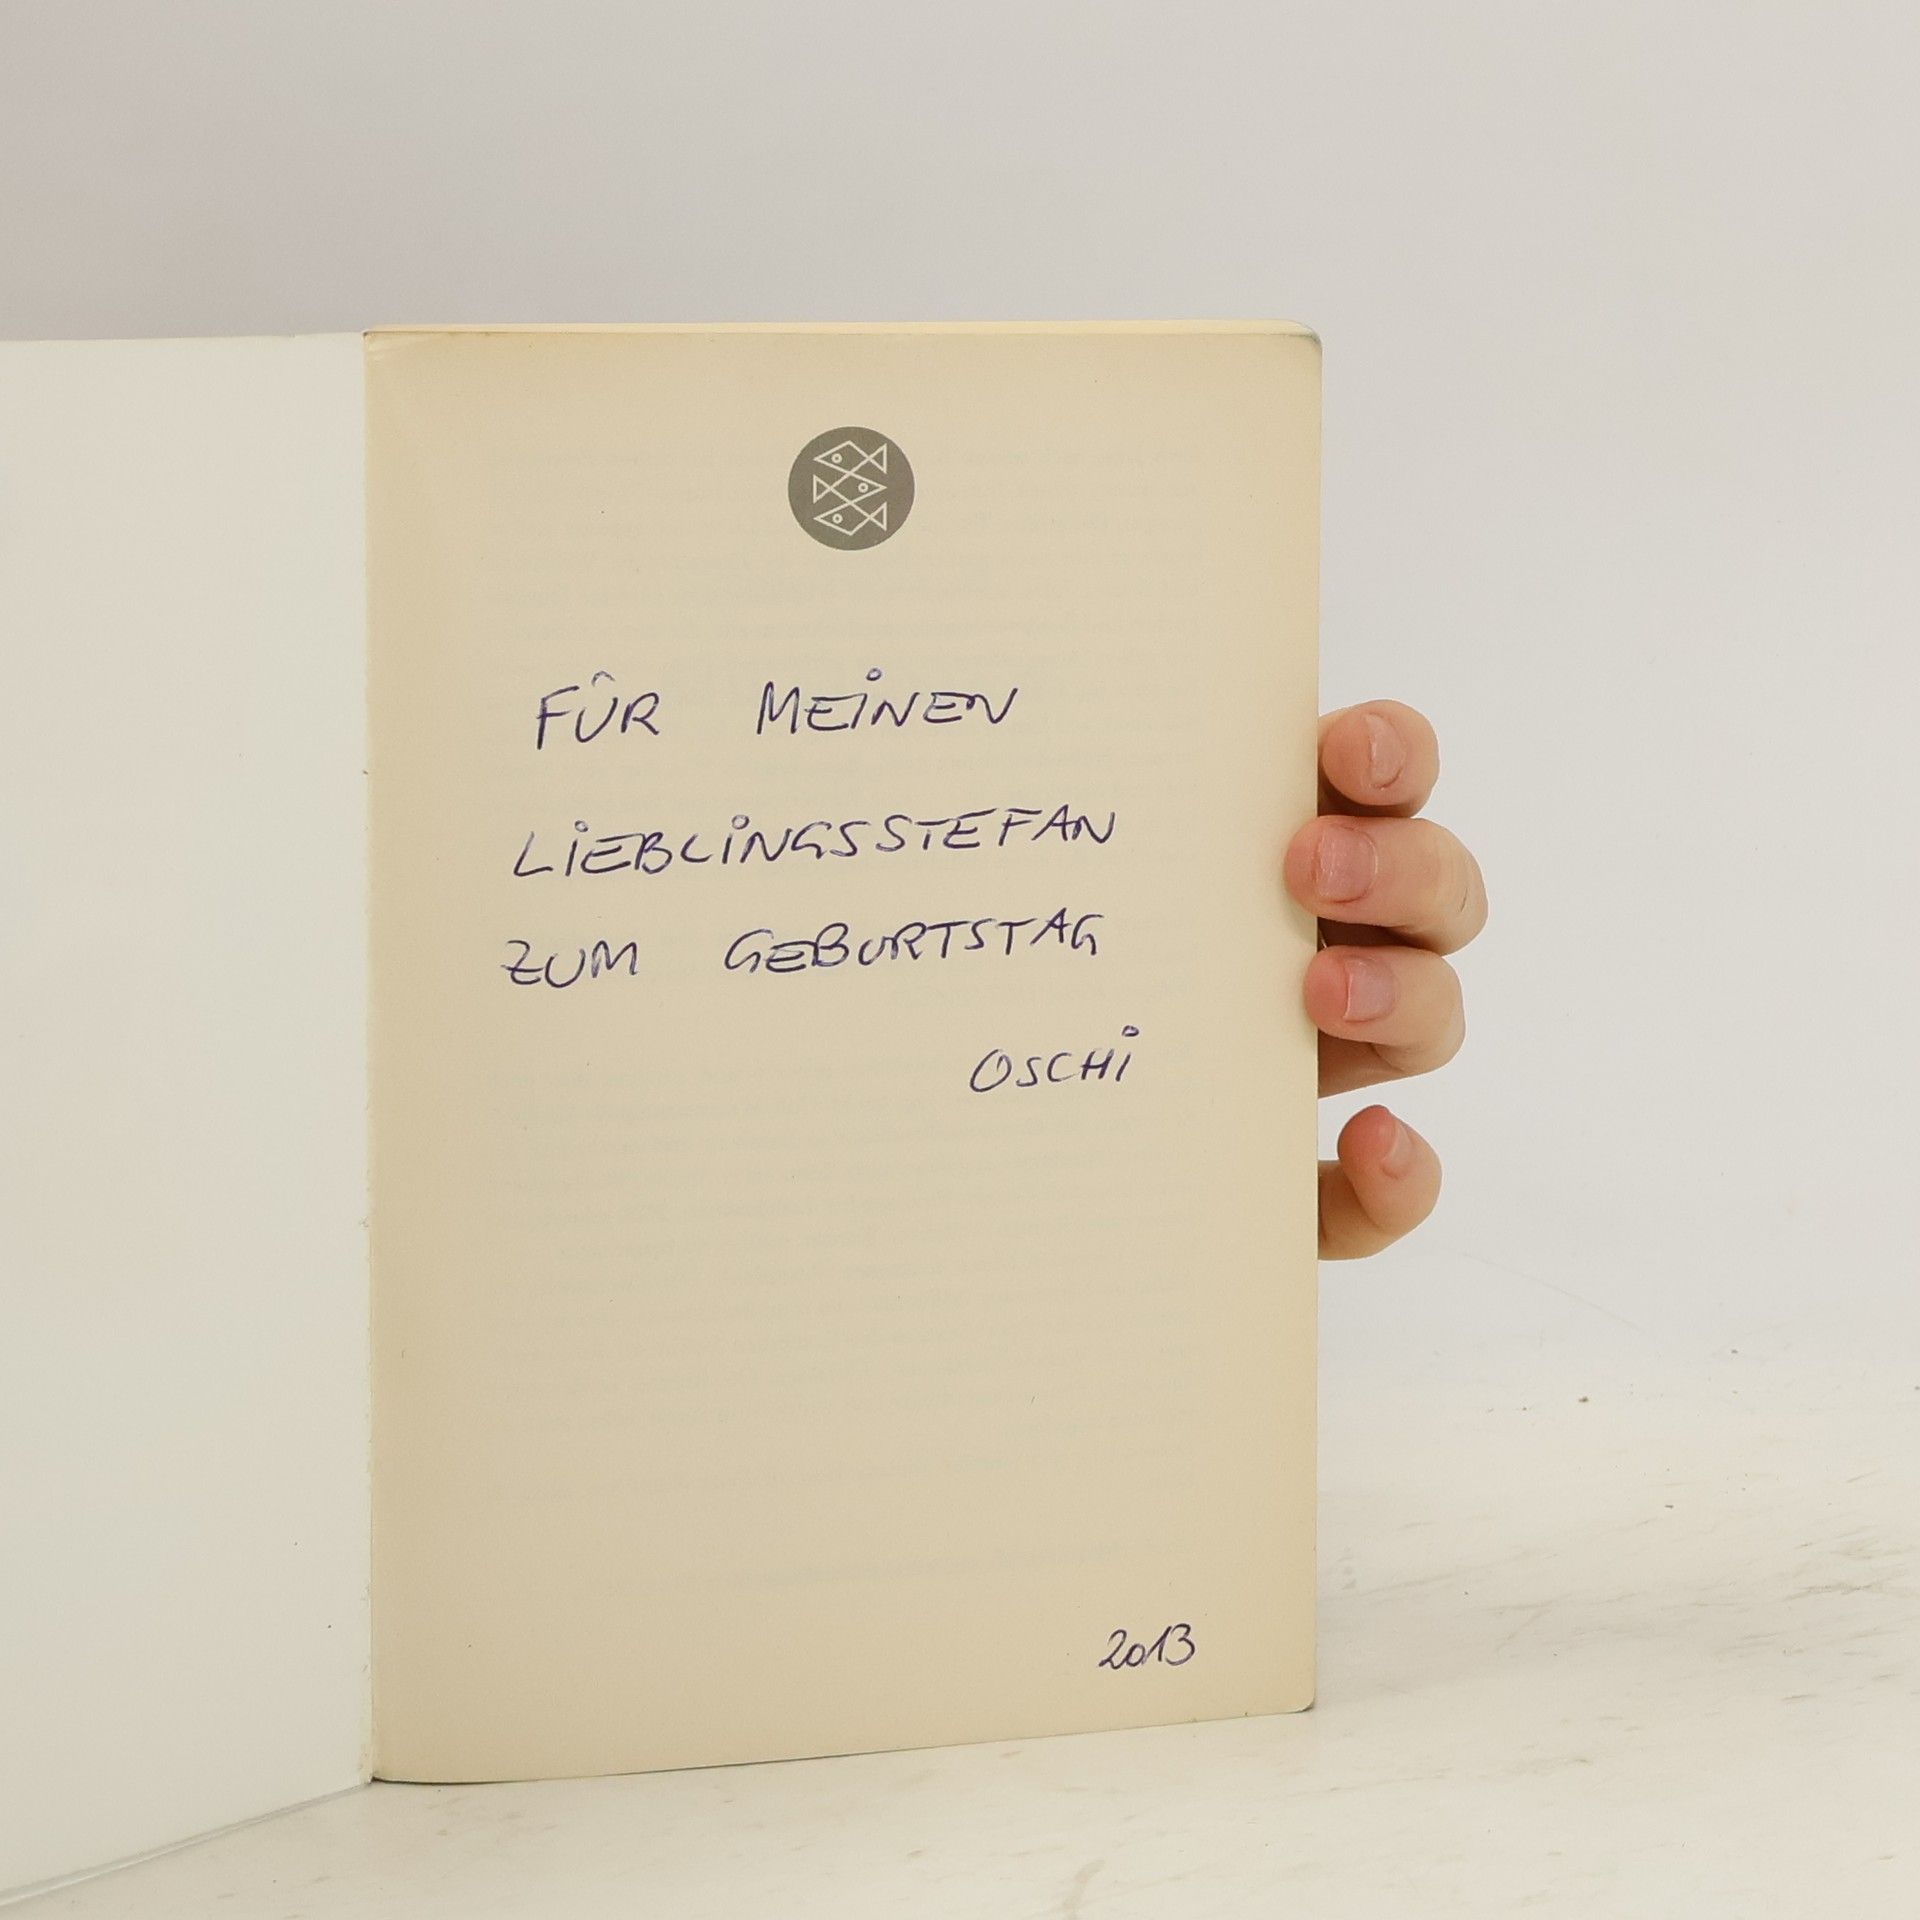 FÜR MEiNEN
LiEBLiNGSSTEFAN
ZUM GEBURTSTAG
OSCHi
2013